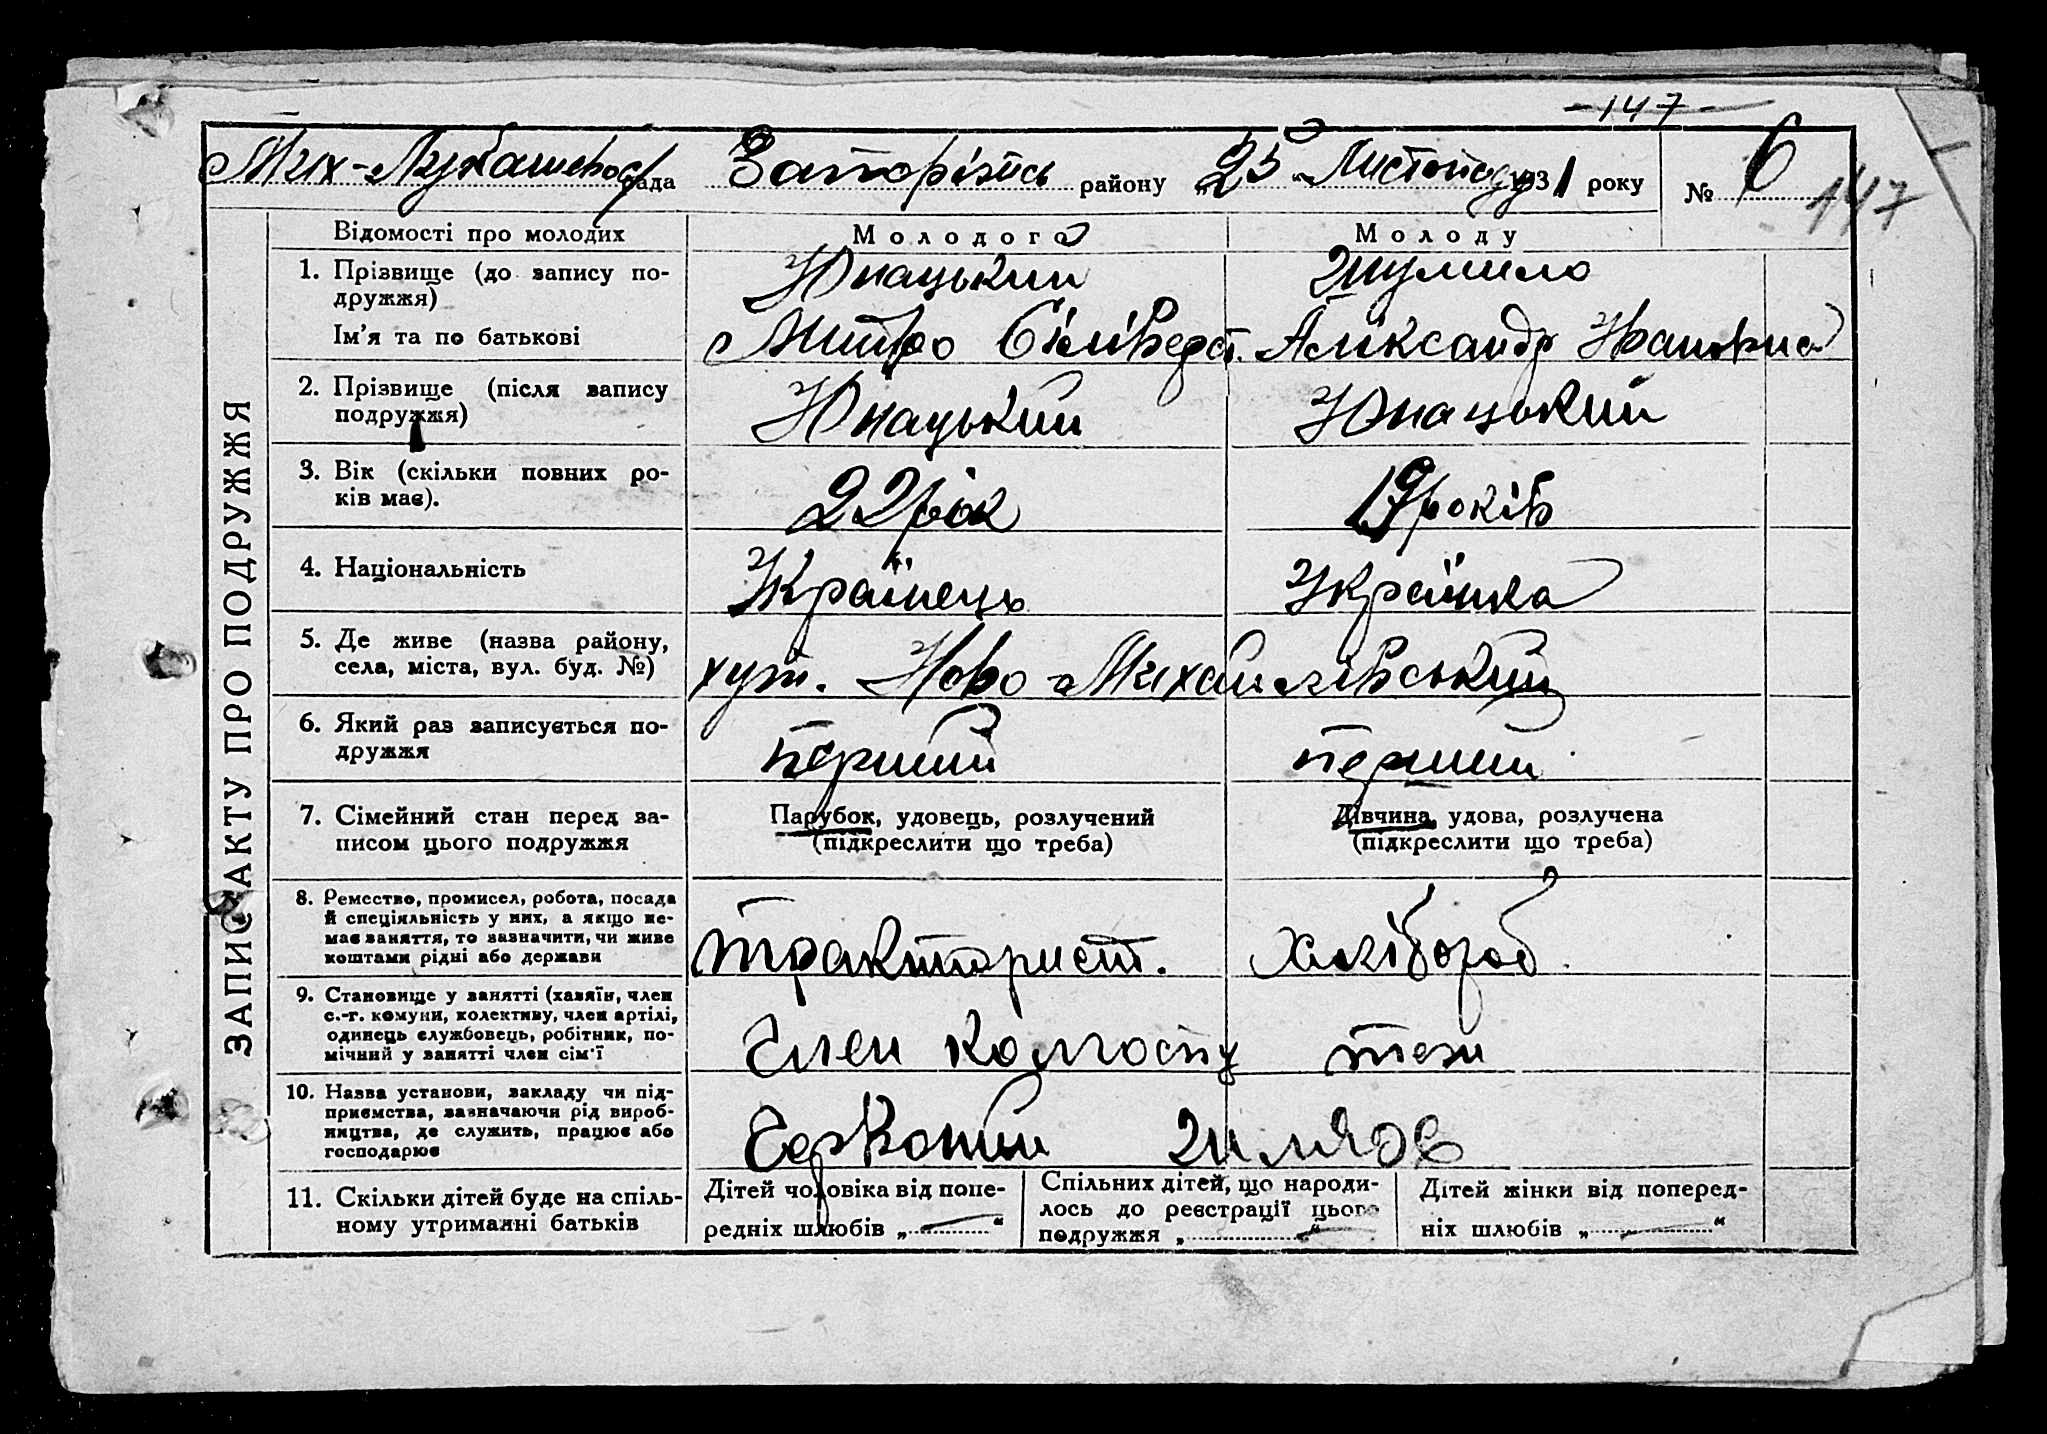 - 147 -
Мих-Лукашевос рада Запорізьк району „25“ Листопаду 1931 року № 6
147
ЗАПИС АКТУ ПРО ПОДРУЖЖЯ
Відомості про молодих Молодого Молоду
1. Прізвище (до запису по-
дружжя) Юнацький Шумило
Ім'я та по батькові Митро Сілівест. Аліксандр Івановна
2. Прізвище (після запису
подружжя) Юнацький Юнацький
3. Вік (скільки повних ро-
ків має). 22 рік 19 років
4. Національність Українець Українка
5. Де живе (назва району,
села, міста, вул. буд. №) хут. Ново-Михайлівський
6. Який раз записується по-
дружжя перший перший
7. Сімейний стан перед за- Парубок, удовець, розлучений Дівчина, удова, розлучена
писом цього подружжя (підкреслити що треба) (підкреслити що треба)
8. Ремество, промисел, робота, посада
й спеціяльність у них, а якщо не-
має заняття, то зазначити, чи живе
коштами рідні або держави тракторист. хлібороб.
9. Становище у занятті (хазяїн, член
с.-г. комуни, колективу, член артілі,
одинець службовець, робітник, по-
мічний у занятті член сім'ї Член колгоспу теж
10. Назва установи, закладу чи під-
приємства, зазначаючи рід вироб-
ництва, де служить, працює або
господарює Червоний шлях
11. Скільки дітей буде на спіль-
ному утриманні батьків
Дітей чоловіка від попе-
редніх шлюбів „ — “
Спільних дітей, що народи-
лось до реєстрації цього
подружжя „ — “
Дітей жінки від поперед-
ніх шлюбів „ — “